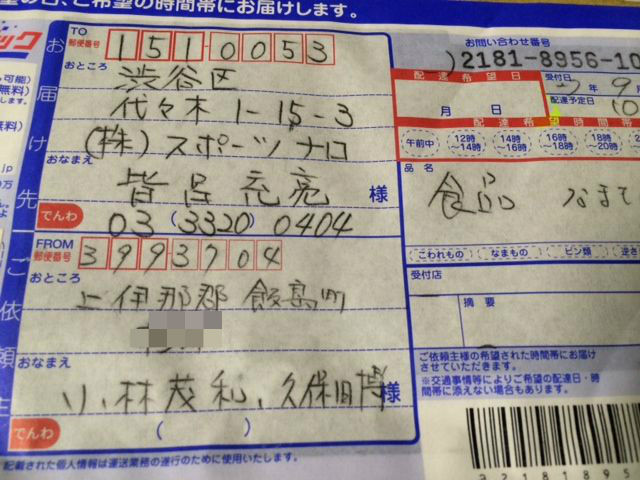 の日、ご希望の時間帯にお届けします。
ック
お届け先
TO
郵便番号 151-0053
おところ
渋谷区
代々木 1-15-3
(株)スポーツナロ
おなまえ
皆呂充亮 様
でんわ 03 (3320) 0404
ご依頼主
FROM
郵便番号 3993704
おところ
上伊那郡 飯島町
おなまえ
小林茂和、久保田博 様
でんわ ( )
記載された個人情報は運送業務の遂行のために使用いたします。
お問い合わせ番号
2181-8956-10
配達希望日
月 日
受付日
年 9
配達予定日
10
配達希望時間帯
午前中
12時～14時
14時～16時
16時～18時
18時～20時
品名
食品
こわれもの
なまもの
ビン類
逆さ
受付店
摘要
ご依頼主様の希望された時間帯にお届け
させていただきます。
※交通事情等によりご希望の配達日・時
間帯に添えない場合もあります。